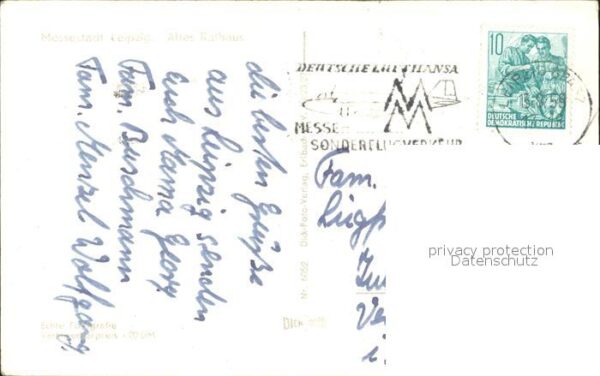 Messestadt Leipzig Altes Rathaus
10
DEUTSCHE LUFTHANSA
MM
MESSE
SONDERFLUGVERKEHR
DEUTSCHE
DEMOKRATISCHE REPUBLIK
die besten Grüße
aus Leipzig senden
Euch Mama Georg
Fam. Buschmann
Fam. Menzel Wolfgang
Fam.
i.
Nr. 6052 Dick-Foto-Verlag, Erlbach
Echte Fotografie
Verbraucherpreis -,20 DM
privacy protection
Datenschutz